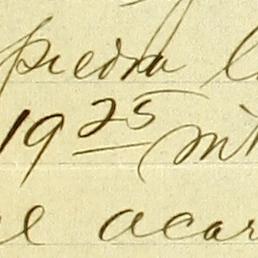 piedra
19 25 mt
el acar